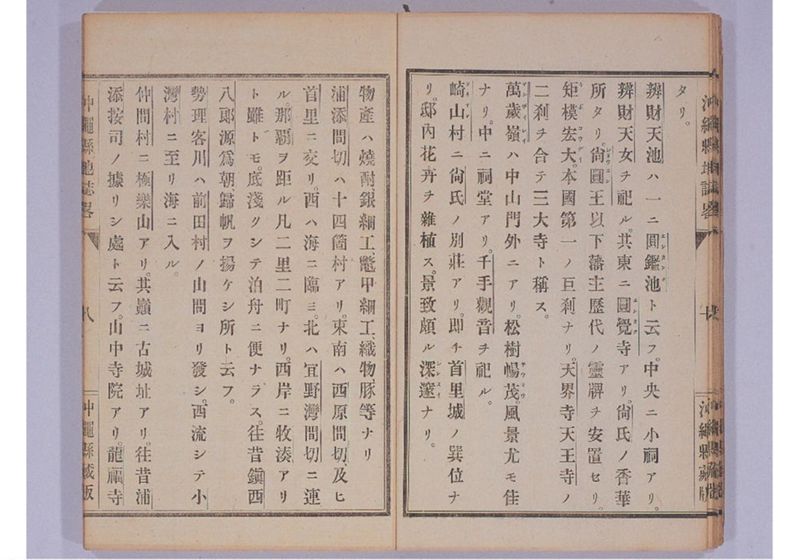 タリ。
辨財天池ハ一ニ圓鑑池ト云フ。中央ニ小祠アリ。
辨財天女ヲ祀ル。其東ニ圓覺寺アリ。尙氏ノ香華
所タリ尙圓王以下藩主歷代ノ靈牌ヲ安置セリ。
矩模宏大。本國第一ノ巨刹ナリ。天界寺天王寺ノ
二刹チ合テ三大寺ト稱ス。
萬歲嶺ハ中山門外ニアリ。松樹暢茂。風景尤モ佳
ナリ。中ニ祠堂アリ。千手觀音チ祀ル。
崎山村ニ尙氏ノ別莊アリ。卽チ首里城ノ巽位ナ
リ。邸內花卉チ雜植ス。景致頗ル深邃ナリ。
物產ハ燒酎銀細工鼈甲細工織物豚等ナリ
浦添間切ハ十四箇村アリ。東南ハ西原間切及ヒ
首里ニ交リ。西ハ海ニ臨ミ。北ハ宜野灣間切ニ連
ル。那覇ヲ距ル凡二里二町ナリ。西岸ニ牧湊アリ
ト雖トモ。底淺クシテ泊舟ニ便ナラス。往昔鎭西
八郎源爲朝歸帆ヲ揚ケシ所ト云フ。
勢理客川ハ前田村ノ山間ヨリ發シ。西流シテ小
灣村ニ至リ海ニ入ル。
仲間村ニ極樂山アリ。其巓ニ古城址アリ。往昔浦
添按司ノ據リシ處ト云フ。山中寺院アリ。龍福寺
沖繩縣地誌畧
八
沖繩縣藏版